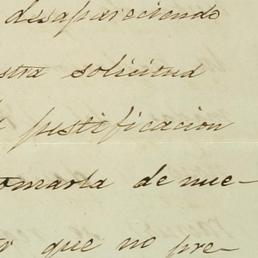 desapareciendo
stra solicitud
justificacion
omarla de nue-
que no pre-